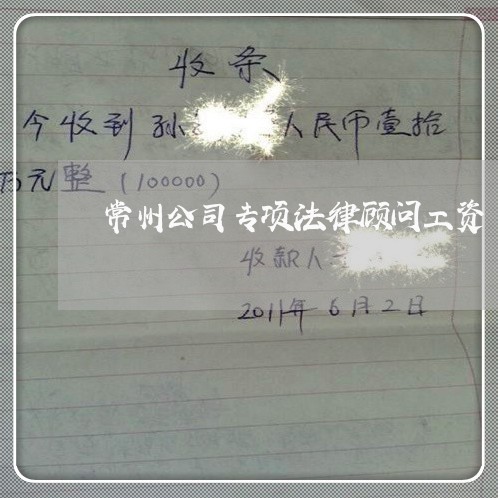 收条
今收到孙 人民币壹拾
万元整(100000)
常州公司专项法律顾问工资
收款人
2011年6月2日